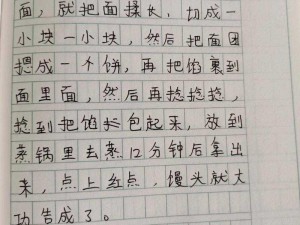 面，就把面揉长，切成一
小块一小块，然后把面团
摁成一个饼，再把馅裹到
面里面，然后再捻捻捻，
捻到把馅长包起来，放到
蒸锅里去蒸12分钟后拿出
来，点上红点，馒头就大
功告成了。